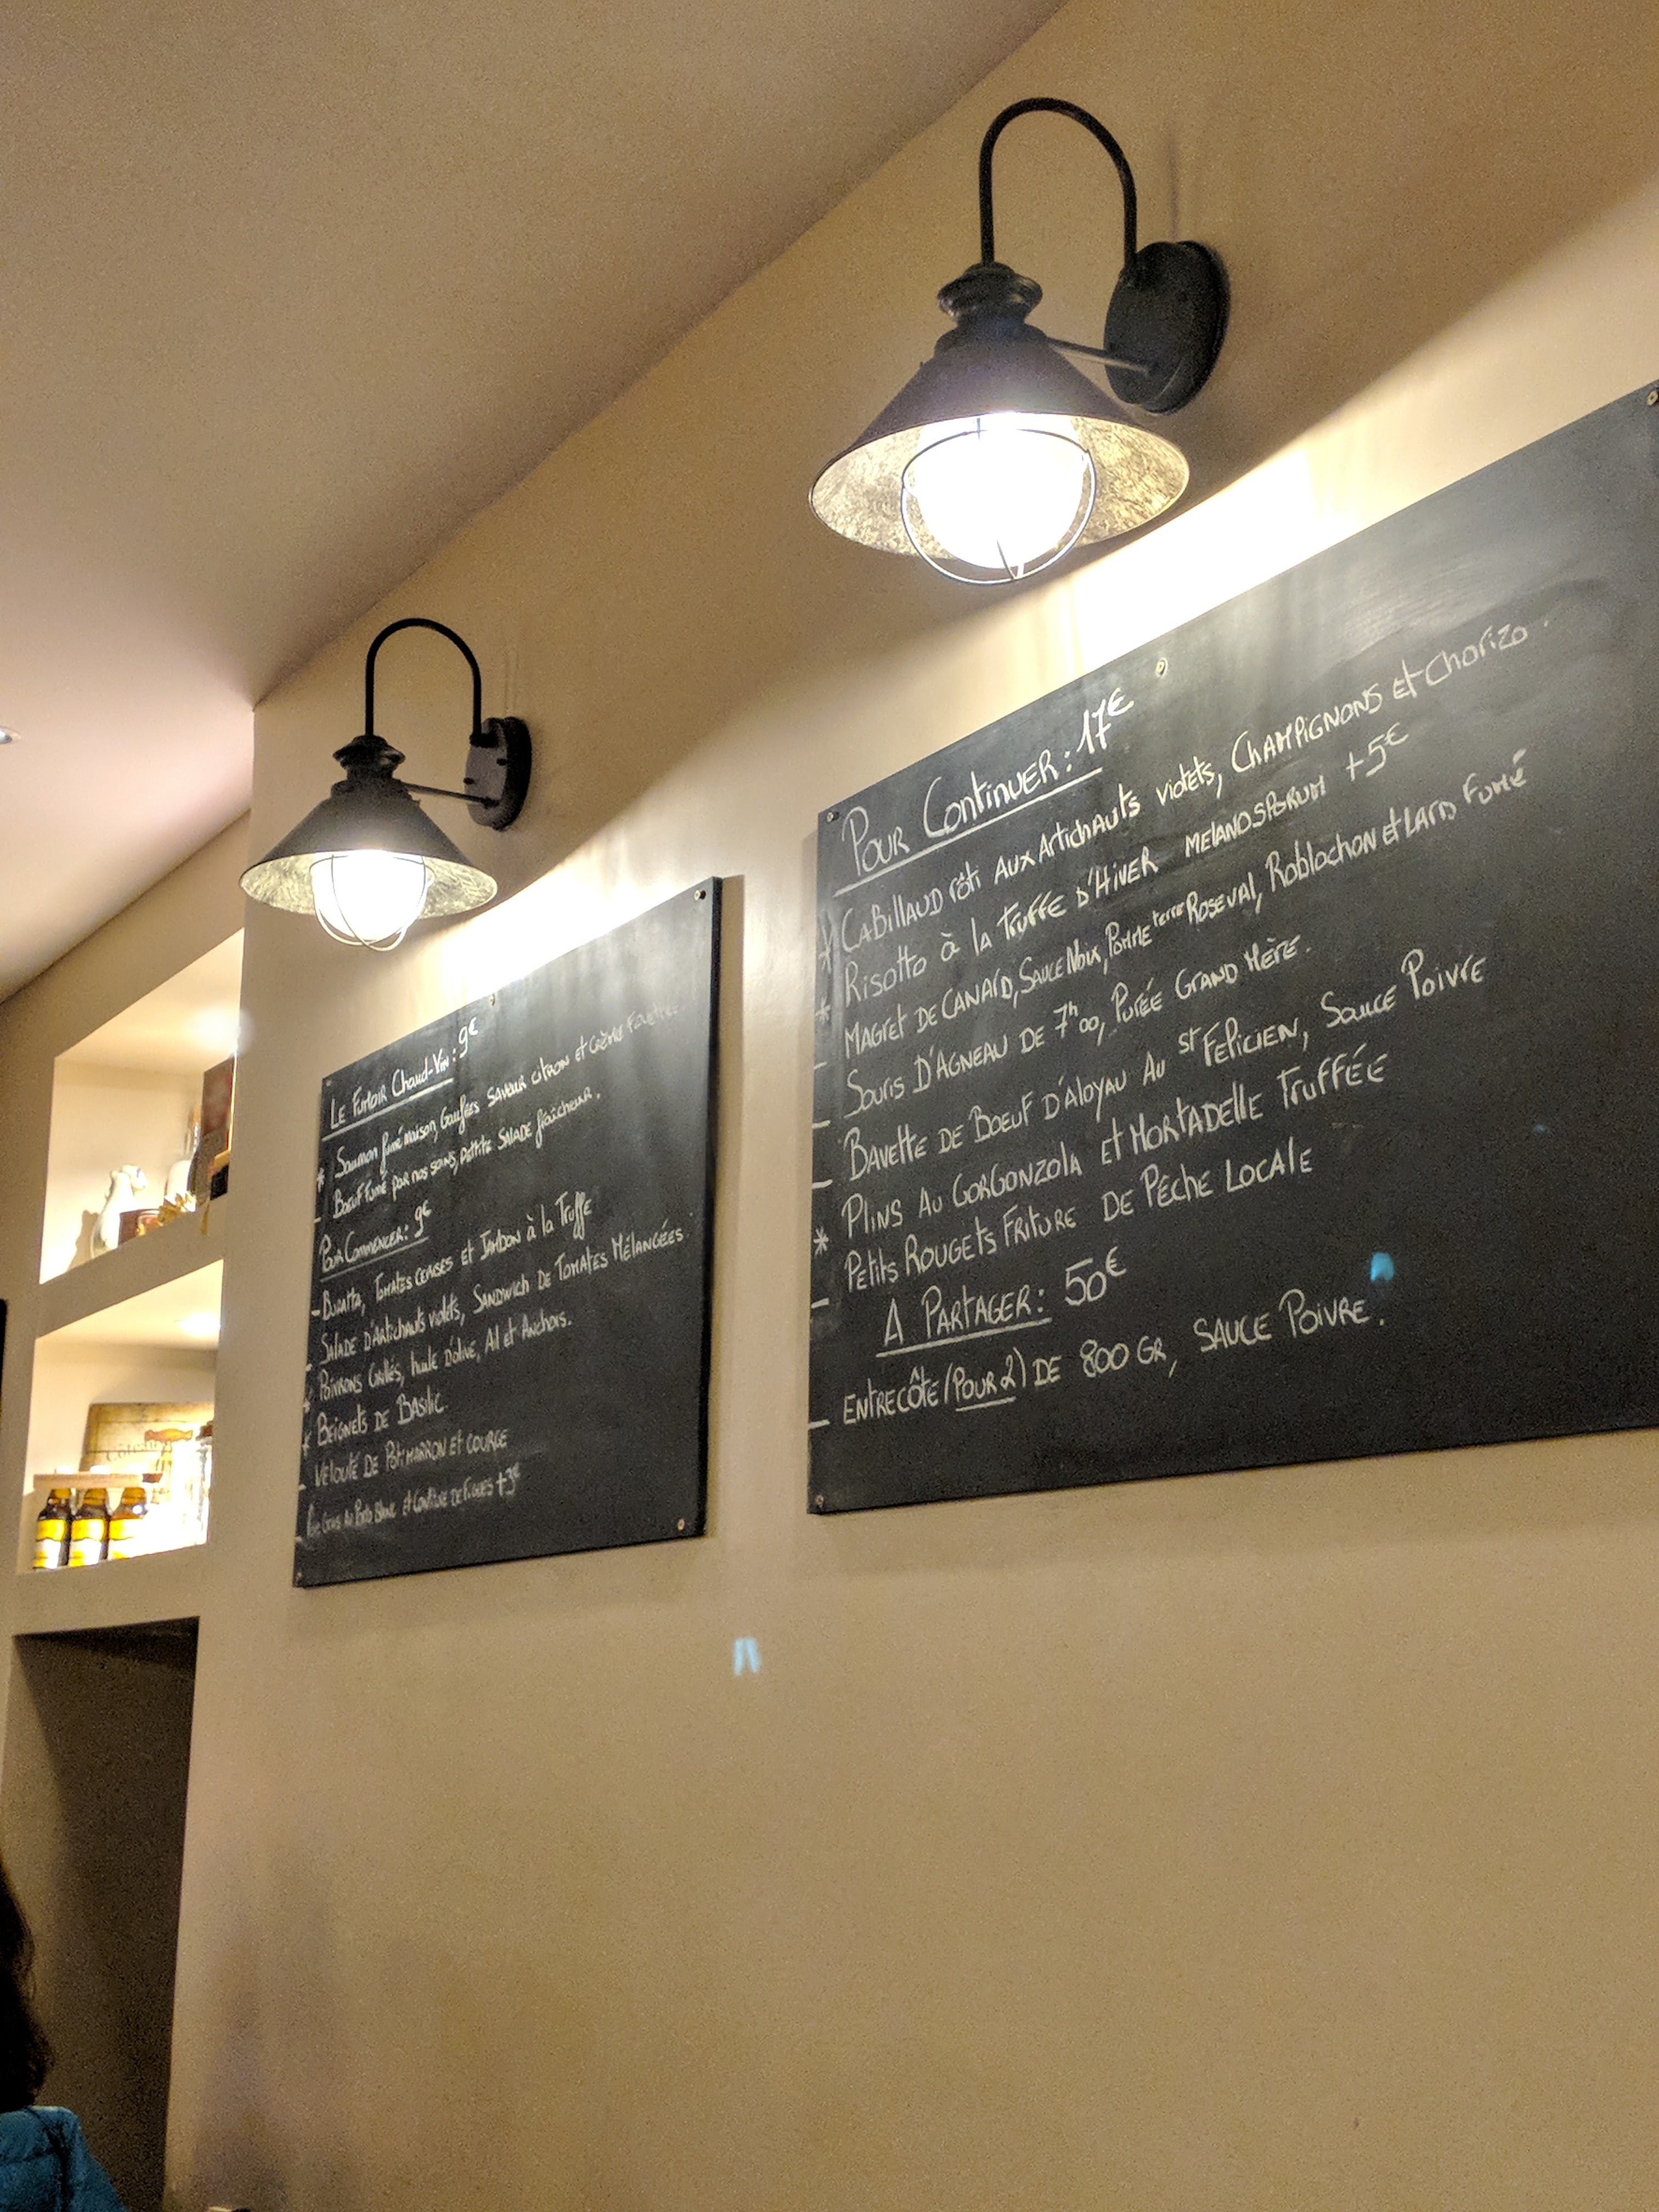 LE FUMOIR Chaud-Vin: 9€
* Saumon fumé maison, Gaufres SAVEUR CITRON ET CRÈME
- BOEUF FUMÉ par nos soins, petite SALADE fraîcheur.
POUR COMMENCER: 9€
- BURATTA, TOMATES CERISES ET JAMBON à la Truffe
- SALADE D'Artichauts violets, SANDWICH DE TOMATES MÉLANGÉES
* POIVRONS Grillés, huile D'olive, Ail et Anchois.
* BEIGNETS DE BASILIC.
- VELOUTÉ DE POTIMARRON ET COURGE
- GRAS AU PORTO BLANC et CONFITURE DE FIGUES +3€
POUR CONTINUER: 17€
* CABILLAUD rôti AUX Artichauts violets, CHAMPIGNONS et Chorizo.
* RISOTTO à la TRUFFE D'HIVER MELANOSPORUM +5€
* MAGRET DE CANARD, SAUCE NOIX, POMME terre ROSEVAL, ROBLOCHON et LARD FUMÉ
- SOURIS D'AGNEAU DE 7h00, PURÉE GRAND MÈRE.
- BAVETTE DE BOEUF D'ALOYAU AU ST FELICIEN, SAUCE POIVRE
- PLINS AU GORGONZOLA ET MORTADELLE TRUFFÉE
* PETITS ROUGETS FRITURE DE PÊCHE LOCALE
A PARTAGER: 50€
- ENTRECÔTE (POUR 2) DE 800 GR, SAUCE POIVRE.